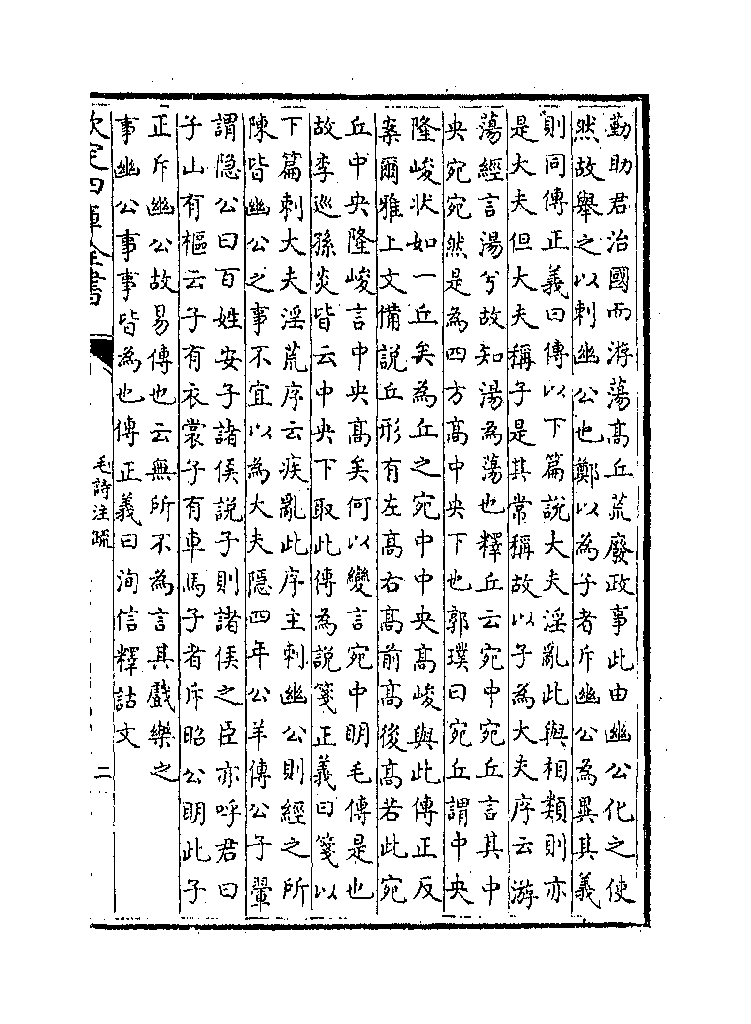 勤助君治國而游蕩髙丘荒廢政事此由幽公化之使
然故舉之以刺幽公也鄭以為子者斥幽公為異其義
則同傳正義曰傳以下篇說大夫淫亂此與相類則亦
是大夫但大夫稱子是其常稱故以子為大夫序云游
蕩經言湯兮故知湯為蕩也釋丘云宛中宛丘言其中
央宛宛然是為四方髙中央下也郭璞曰宛丘謂中央
隆峻狀如一丘矣為丘之宛中中央髙峻與此傳正反
案爾雅上文備説丘形有左髙右髙前髙後髙若此宛
丘中央隆峻言中央髙矣何以變言宛中明毛傳是也
故李巡孫炎皆云中央下取此傳為説箋正義曰箋以
下篇刺大夫淫荒序云疾亂此序主刺幽公則經之所
陳皆幽公之事不宜以為大夫隱四年公羊傳公子翬
謂隐公曰百姓安子諸侯説子則諸侯之臣亦呼君曰
子山有樞云子有衣裳子有車馬子者斥昭公明此子
正斥幽公故易傳也云無所不為言其戲樂之
事幽公事事皆為也傳正義曰洵信釋詁文
欽定四庫全書
毛詩注疏
二